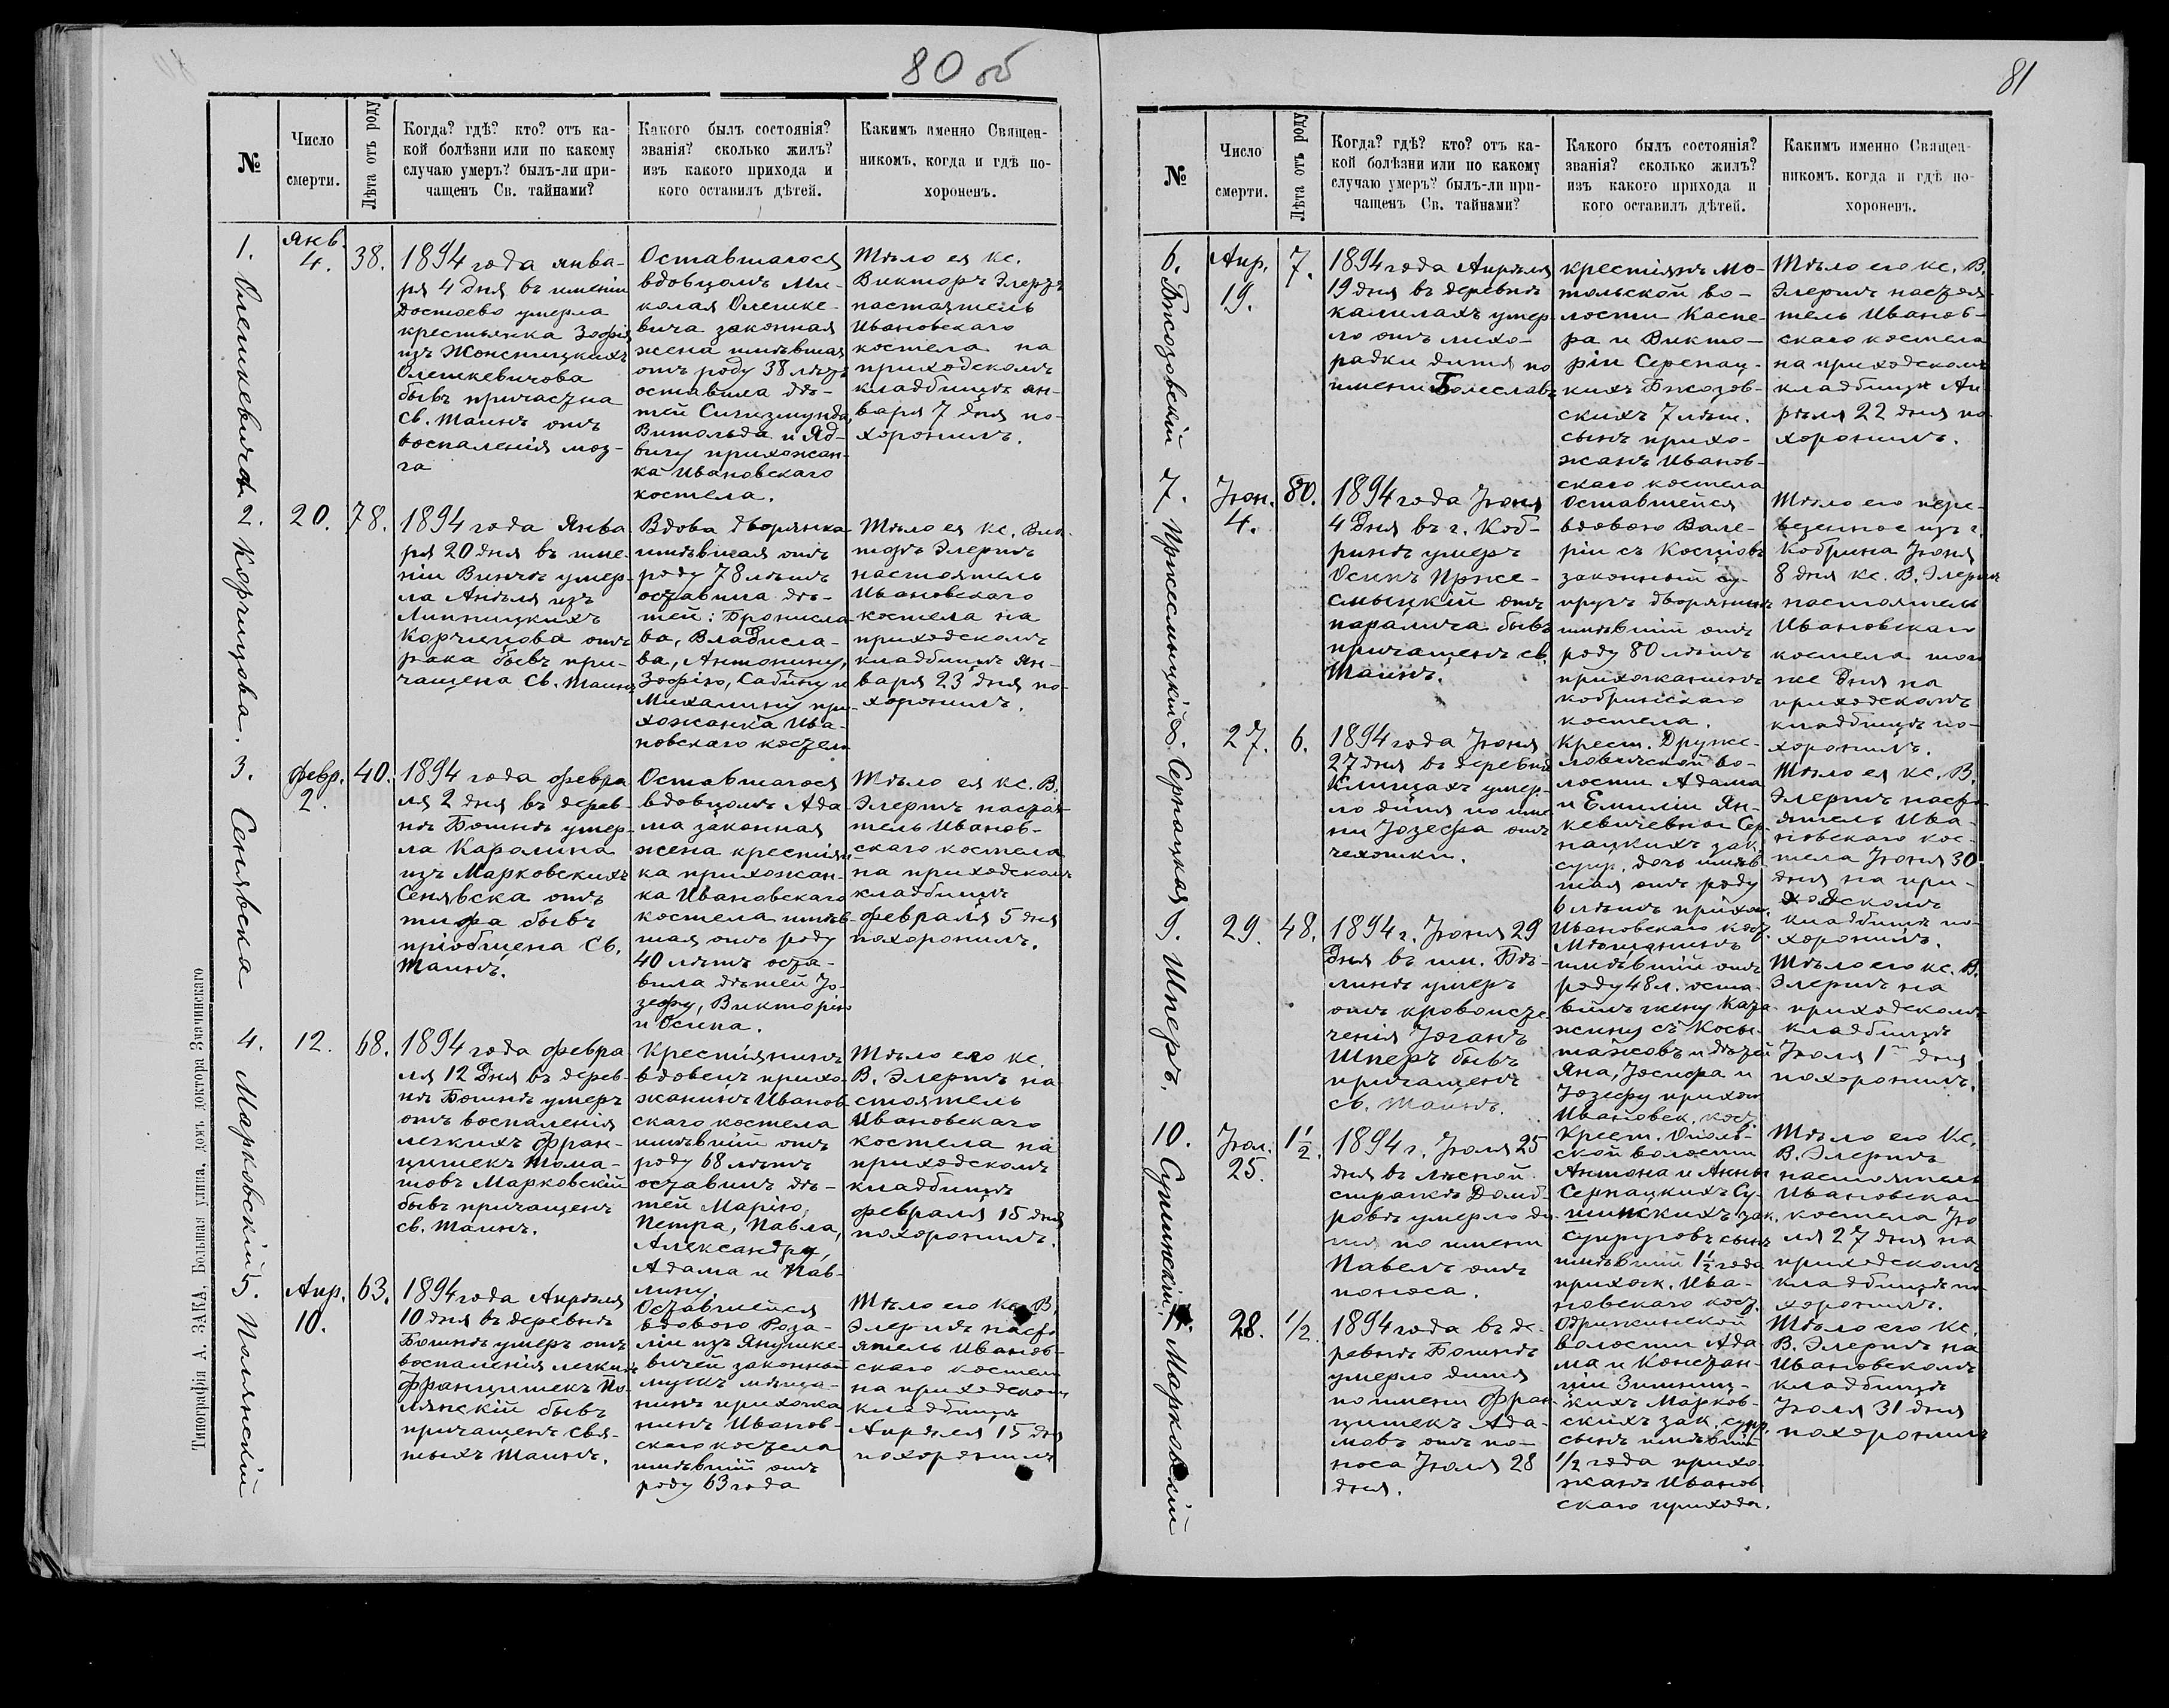 80 об
№
Число
смерти.
Лѣта отъ роду
Когда? гдѣ? кто? отъ ка-
кой болѣзни или по какому
случаю умеръ? былъ-ли при-
чащенъ Св. тайнами?
Какого былъ состоянія?
званія? сколько жилъ?
изъ какого прихода и
кого оставилъ дѣтей.
Какимъ именно Священ-
никомъ, когда и гдѣ по-
хороненъ.
1. Олешкевичова
Янв.
4.
38.
1894 года Янва-
ря 4 дня въ имѣніи
Достоево умерла
крестьянка Зофія
изъ
Олешкевичова
бывъ причастна
Св. Таинъ отъ
воспаленія моз-
га
Оставшагося
вдовцомъ Ми-
колая Олешке-
вича законная
жена имѣвшая
отъ роду 38 лѣтъ
оставила дѣ-
тей Сигизмунда,
Витольда и Яд-
вигу прихожан-
ка Ивановскаго
костела.
Тѣло ея кс.
Викторъ Элертъ
настоятель
Ивановскаго
костела на
приходскомъ
кладбищѣ ян-
варя 7 дня по-
хоронилъ.
2. Корчицова.
20.
78.
1894 года Янва
ря 20 дня въ имѣ-
ніи умер-
ла Анѣля изъ
Липницкихъ
Корчицова отъ
рака бывъ при-
чащена Св. Таинъ
Вдова дворянка
имѣвшая отъ
роду 78 лѣтъ
оставила дѣ-
тей: Бронисла
ва, Владисла-
ва, Антонину,
Зофію, Сабину и
Михалину при-
хожанка Ива-
новскаго костела
Тѣло ея кс. Вик-
торъ Элертъ
настоятель
Ивановскаго
костела на
приходскомъ
кладбищѣ Ян-
варя 23 дня по-
хоронилъ.
3. Сенявска
Февр.
2.
40.
1894 года февра
ля 2 дня въ дерев-
нѣ Бошнѣ умер-
ла Каролина
изъ Марковскихъ
Сенявска отъ
тифа бывъ
пріобщена Св.
Таинъ.
Оставшагося
вдовцомъ Ада-
ма законная
жена крестьян-
ка прихожан-
ка Ивановскаго
костела имѣв-
шая отъ роду
40 лѣтъ оста-
вила дѣтей Jo-
зефу, Викторію
и Осипа.
Тѣло ея кс. В.
Элертъ настоя-
тель Иванов-
скаго костела
на приходскомъ
кладбищѣ
февраля 5 дня
похоронилъ.
4. Марковскій
12.
68.
1894 года февра
ля 12 дня въ дерев-
нѣ Бошнѣ умеръ
отъ воспаленія
легкихъ Фран-
цишекъ Тома-
шовъ Марковскій
бывъ причащенъ
св. Таинъ.
Крестьянинъ
вдовецъ прихо-
жанинъ Иванов
скаго костела
имѣвшій отъ
роду 68 лѣтъ
оставилъ дѣ-
тей Марію,
Петра, Павла,
Александру,
Адама и Пав-
лину.
Тѣло его кс.
В. Элертъ на
стоятель
Ивановскаго
костела на
приходскомъ
кладбищѣ
февраля 15 дня
похоронилъ.
5. Полянскій
Апр.
10.
63.
1894 года Апрѣля
10 дня въ деревнѣ
Бошнѣ умеръ отъ
воспаленія легкихъ
Францишекъ По-
лянскій бывъ
причащенъ Свя-
тыхъ Таинъ.
Оставшейся
вдовою Роза-
ліи изъ Янушке-
вичей законный
мужъ мѣща-
нинъ прихожа
нинъ Иванов-
скаго костела
имѣвшій отъ
роду 63 года
Тѣло его кс. В.
Элертъ насто
ятель Иванов-
скаго костела
на приходскомъ
кладбищѣ
Апрѣля 15 дня
похоронилъ
Типографія А. ЗАКА, Большая улица, домъ доктора Значинскаго
81
№
Число
смерти.
Лѣта отъ роду
Когда? гдѣ? кто? отъ ка-
кой болѣзни или по какому
случаю умеръ? былъ-ли при-
чащенъ Св. тайнами?
Какого былъ состоянія?
званія? сколько жилъ?
изъ какого прихода и
кого оставилъ дѣтей.
Какимъ именно Священ-
никомъ, когда и гдѣ по-
хороненъ.
6. Бжозовскій
Апр.
19.
7.
1894 года Апрѣля
19 дня въ деревнѣ
Калилахъ умер-
ло отъ лихо-
радки дитя по
имени Болеславъ
крестьянъ Мо-
тольской во-
лости Каспе-
ра и Викто-
ріи Серпац-
кихъ Бжозов-
скихъ 7 лѣт.
сынъ прихо-
жанъ Иванов-
скаго костела
Тѣло его кс. В.
Элертъ настоя-
тель Иванов-
скаго костела
на приходскомъ
кладбищѣ Ап-
рѣля 22 дня по-
хоронилъ.
7. Пржесмыцкій
Jюн.
4.
80.
1894 года Jюня
4 дня въ г. Коб-
ринѣ умеръ
Осипъ Прже-
смыцкій отъ
паралича бывъ
причащенъ св.
Таинъ.
Оставшейся
вдовою Вале-
ріи съ
законный су-
пругъ дворянинъ
имѣвшій отъ
роду 80 лѣтъ
прихожанинъ
кобринскаго
костела.
Тѣло его пере-
везенное изъ г.
Кобрина Jюня
8 дня кс. В. Элертъ
настоятель
Ивановскаго
костела того
же дня на
приходскомъ
кладбищѣ по-
хоронилъ.
8. Серпацкая
27.
6.
1894 года Jюня
27 дня въ деревнѣ
Клищахъ умер-
ло дитя по име
ни Jозефа отъ
чехотки.
Крест. Друже-
ловичской во-
лости Адама
и Емиліи Ян-
кевичевнои Сер-
пацкихъ зак.
супр. дочь имѣв-
шая отъ роду
6 лѣтъ прихож.
Ивановскаго кост.
Тѣло ея кс. В.
Элертъ насто-
ятель Ива-
новскаго кос-
тела Jюня 30
дня на при-
ходскомъ
кладбищѣ по-
хоронилъ.
9. Шперъ.
29.
48.
1894 г. Jюня 29
дня въ им. Бѣ-
линѣ умеръ
отъ кровоисте
ченія Jоганъ
Шперъ бывъ
причащенъ
св. Таинъ.
Мѣщанинъ
имѣвшій отъ
роду 48 л. оста-
вилъ жену Каза-
жину съ
и дѣтей
Яна, Jосифа и
Jозефу прихож
Ивановск. кост.
Тѣло его кс. В.
Элертъ на
приходскомъ
кладбищѣ
Jюля 1го дня
похоронилъ.
10. Сушинскій.
Jюл.
25.
1½.
1894 г. Jюля 25
дня въ лѣсной
стражѣ Домб-
ровѣ умерло ди-
тя по имени
Павелъ отъ
поноса.
Крест. Ополь-
ской волости
Антона и Анны
Серпацкихъ Су-
шинскихъ зак.
супруговъ сынъ
имѣвшій 1½ года
прихож. Ива-
новскаго кост.
Тѣло его Кс.
В. Элертъ
настоятель
Ивановскаго
костела Jю
ля 27 дня на
приходскомъ
кладбищѣ по-
хоронилъ.
11. Марковскій
28.
½.
1894 года въ де-
ревнѣ Бошнѣ
умерло дитя
по имени Фран-
цишекъ Ада-
мовъ отъ по-
носа Jюля 28
дня.
Одрижинской
волости Ада-
ма и Констан-
ціи Зинкиц-
кихъ Марков-
скихъ зак. супр.
сынъ имѣвшій
½ года прихо-
жанъ Иванов-
скаго прихода.
Тѣло его Кс.
В. Элертъ на
Ивановскомъ
кладбищѣ
Jюля 31 дня
похоронилъ